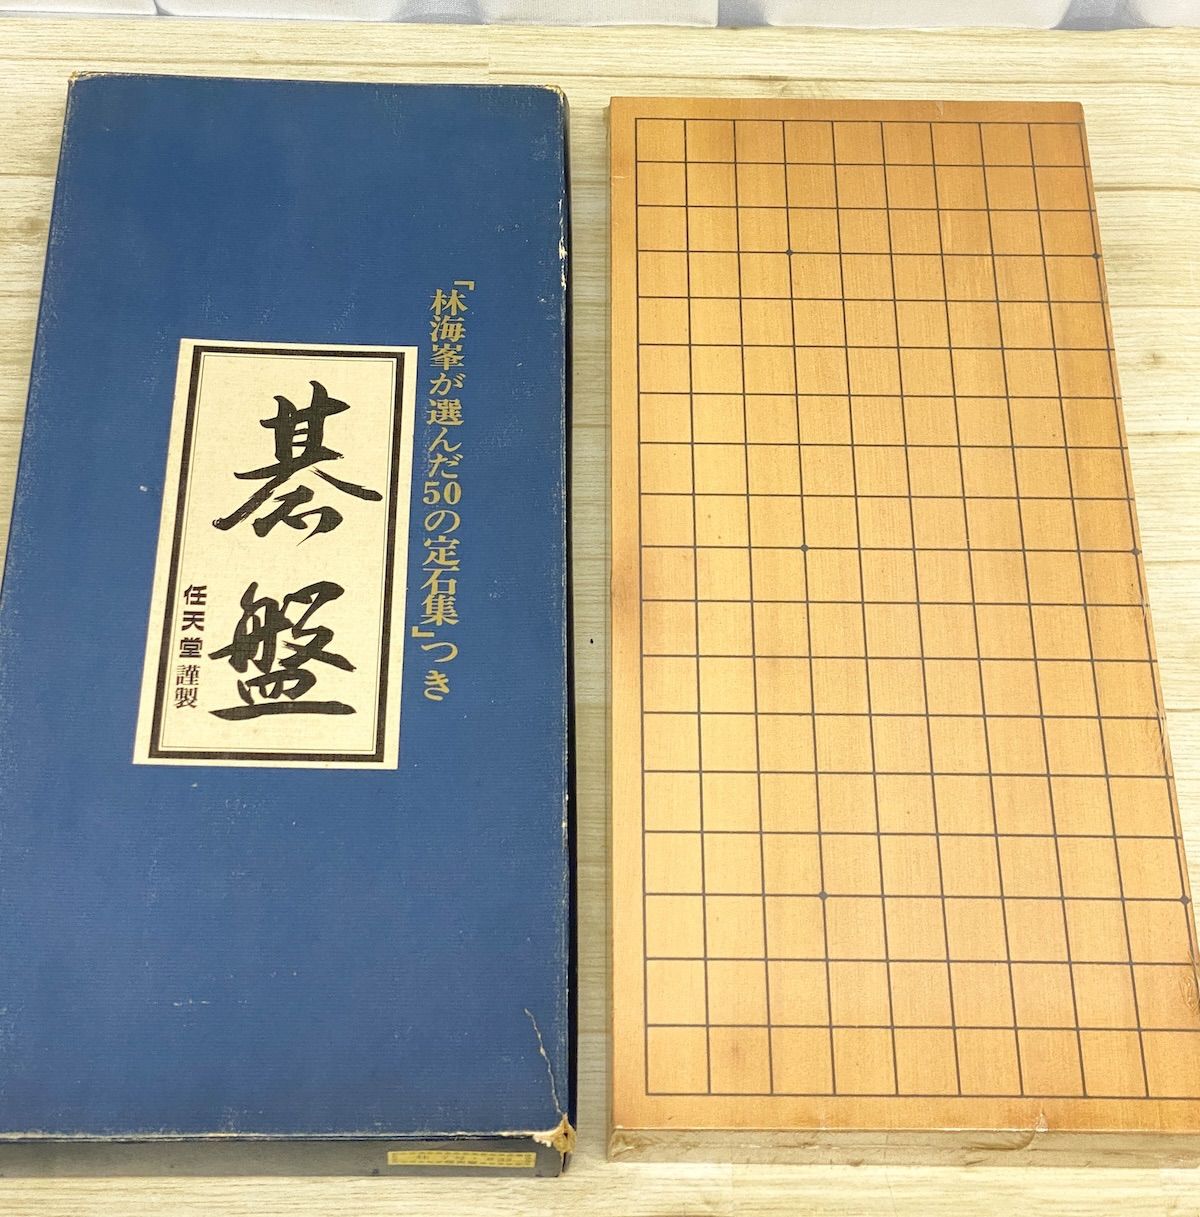 「林海峯が選んだ50の定石集」つき
碁盤
任天堂謹製